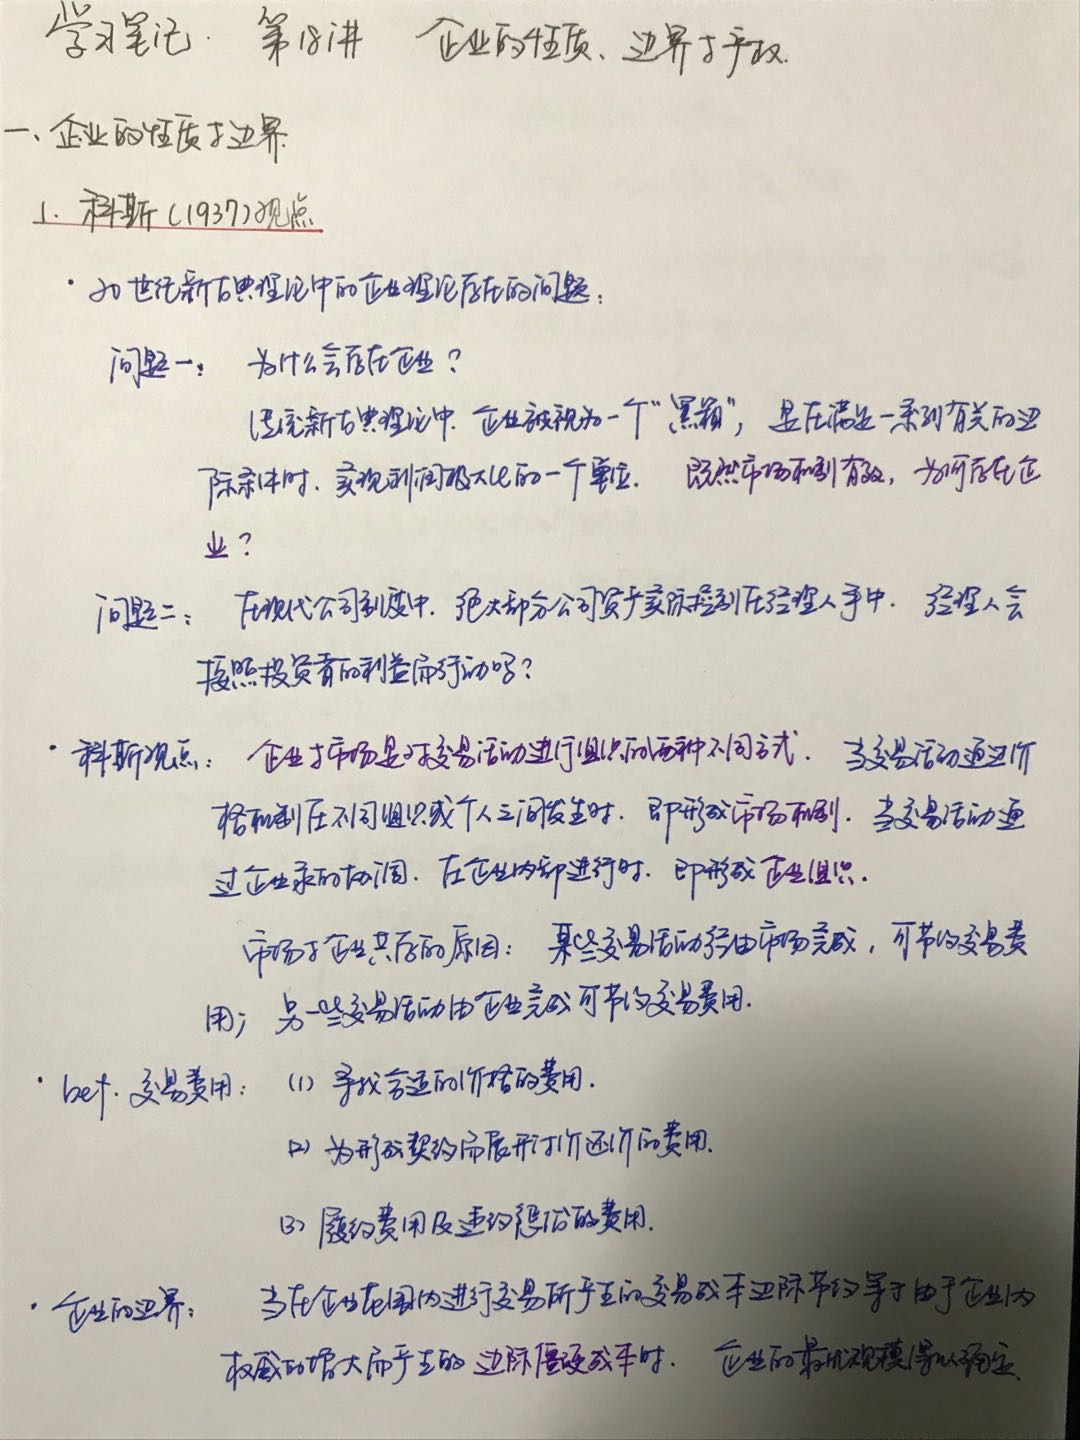 学习笔记. 第18讲 企业的性质、边界与产权.
一、企业的性质与边界.
1. 科斯(1937)观点
· 20世纪新古典理论中的企业理论存在的问题:
问题一: 为什么会存在企业?
传统新古典理论中. 企业被视为一个"黑箱", 是在满足一系列有关的边
际条件时. 实现利润极大化的一个单位. 既然市场机制有效, 为何存在企
业?
问题二: 在现代公司制度中. 绝大部分公司资产实际控制在经理人手中. 经理人会
按照投资者的利益而行动吗?
· 科斯观点: 企业与市场是对交易活动进行组织的两种不同方式. 当交易活动通过价
格机制在不同组织或个人之间发生时. 即形成市场机制. 当交易活动通
过企业家的协调. 在企业内部进行时. 即形成企业组织.
市场与企业共存的原因: 某些交易活动经由市场完成, 可节约交易费
用; 另一些交易活动由企业完成可节约交易费用.
· bet. 交易费用: (1) 寻找合适的价格的费用.
(2) 为形成契约而展开讨价还价的费用.
(3) 履约费用及违约惩治的费用.
· 企业的边界: 当在企业范围内进行交易所产生的交易成本边际节约等于由于企业内
权威的增大而产生的边际僵硬成本时. 企业的最优规模得以确定.